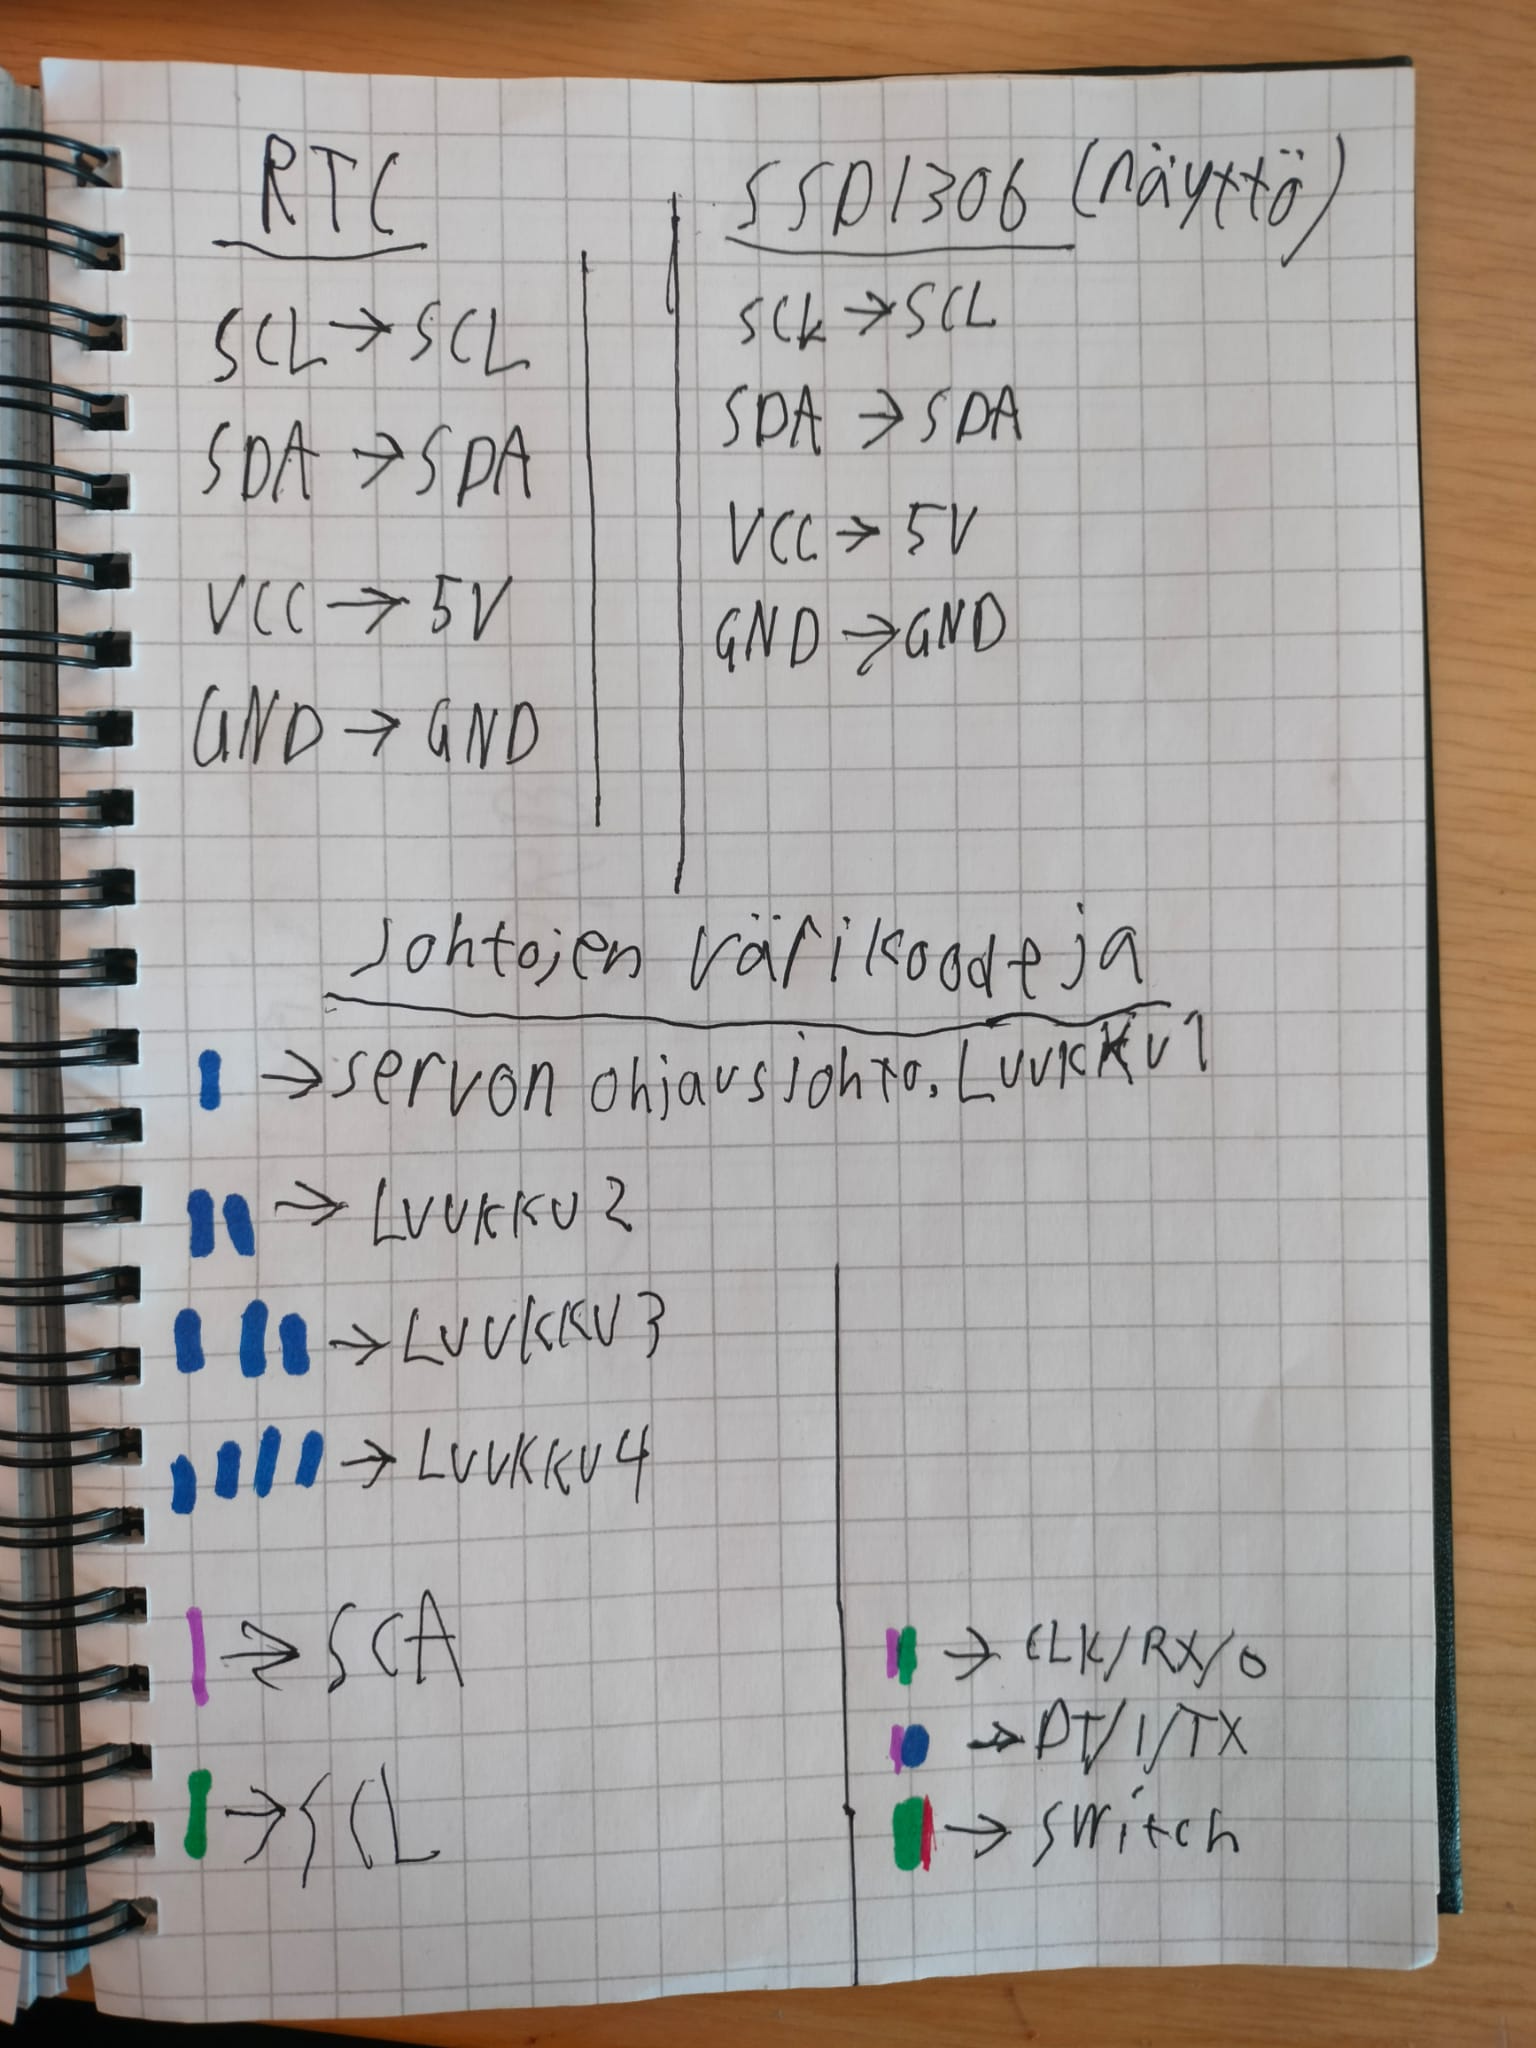 RTC
SCL → SCL
SDA → SDA
VCC → 5V
GND → GND
SSD1306 (näyttö)
SCK → SCL
SDA → SDA
VCC → 5V
GND → GND
Johtojen värikoodeja
→ servon ohjausjohto, LUUKKU 1
→ LUUKKU 2
→ LUUKKU 3
→ LUUKKU 4
→ SCA
→ SCL
→ CLK/RX/0
→ DT/1/TX
→ switch